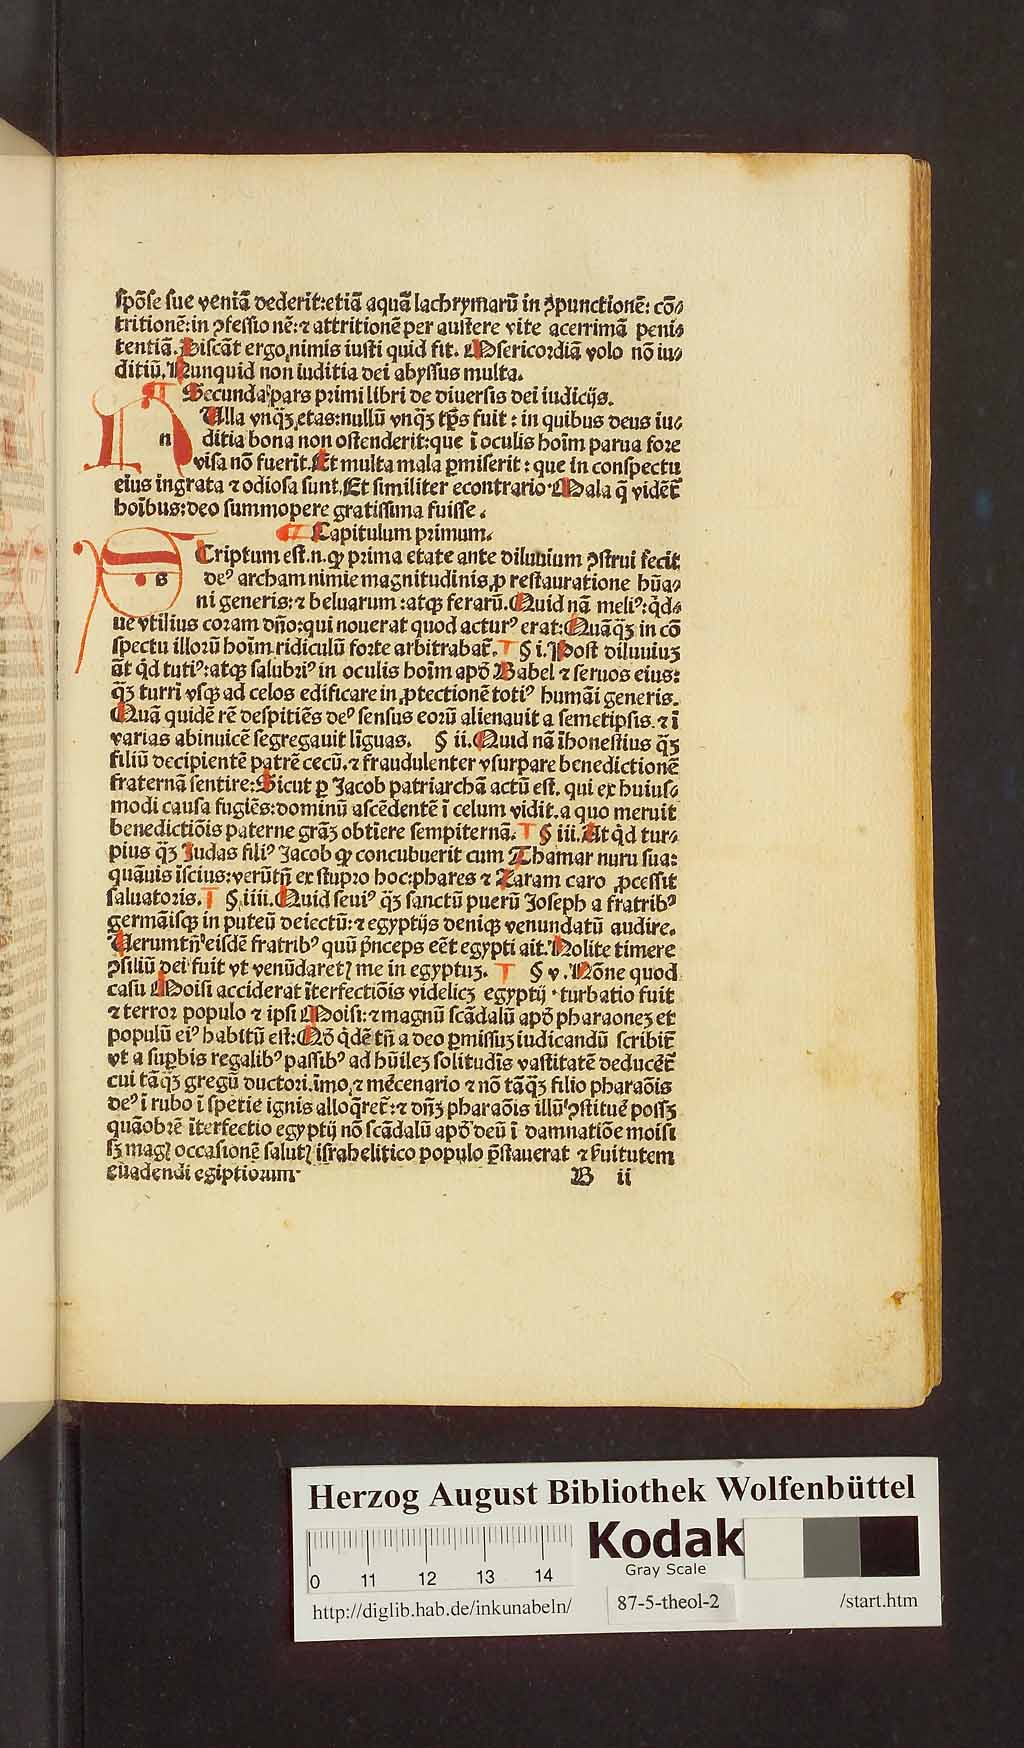 spõse sue veniã dederit:etiã aquã lachrymarũ in ꝯpunctionẽ: cõ⸗
tritionẽ:in ꝯfessio nẽ:⁊ attritionẽ per austere vite acerrimã peni⸗
tentiã. Discãt ergo nimis iusti quid sit. Misericordiã volo nõ iu⸗
ditiũ. Nunquid non iuditia dei abyssus multa.
¶ Secunda pars primi libri de diuersis dei iudicijs.
n Ulla vnqᷓꝫ etas:nullũ vnqᷓꝫ tp̃s fuit : in quibus deus iu⸗
ditia bona non ostenderit:que ĩ oculis hoĩm parua fore
visa nõ fuerit. Et multa mala ꝑmiserit : que in conspectu
eius ingrata ⁊ odiosa sunt. Et similiter econtrario. Mala q̃ vidẽt̃
hoĩbus:deo summopere gratissima fuisse.
¶ Capitulum primum.
s Criptum est.n.ꝙ prima etate ante diluuium ꝯstrui fecit
deꝰ archam nimie magnitudinis ꝓ restauratione hũa⸗
ni generis:⁊ beluarum :atqꝫ ferarũ. Quid nã meliꝰ:qͥd⸗
ue vtilius coram dño:qui nouerat quod acturꝰ erat: Quãqᷓꝫ in cõ
spectu illorũ hoĩm ridiculũ forte arbitrabat̃. ¶ § i. Post diluuiuꝫ
ãt qͥd tutiꝰ:atqꝫ salubriꝰ in oculis hoĩm apð Babel ⁊ seruos eius:
qᷓꝫ turri vsqꝫ ad celos edificare in ꝓtectionẽ totiꝰ humãi generis.
Quã quidẽ rẽ despitiẽs deꝰ sensus eorũ alienauit a semetipsis. ⁊ ĩ
varias abinuicẽ segregauit lĩguas. § ii. Quid nã ĩhonestius qᷓꝫ
filiũ decipientẽ patrẽ cecũ.⁊ fraudulenter vsurpare benedictionẽ
fraternã sentire: Sicut ꝑ Jacob patriarchã actũ est. qui ex huius⸗
modi causa fugiẽs:dominũ ascẽdentẽ ĩ celum vidit.a quo meruit
benedictiõis paterne grãꝫ obtiere sempiternã. ¶ § iii. At qͥd tur⸗
pius qᷓꝫ Judas filiꝰ Jacob ꝙ concubuerit cum Thamar nuru sua:
quãuis ĩscius:verũtñ ex stupro hoc:phares ⁊ Zaram caro ꝓcessit
saluatoris. ¶ § iiii. Quid seuiꝰ qᷓꝫ sanctũ puerũ Joseph a fratribꝰ
germãisqꝫ in puteũ deiectũ:⁊ egyptijs deniqꝫ venundatũ audire.
Uerumtñ eisdẽ fratribꝰ quũ p̃nceps eẽt egypti ait. Nolite timere
ꝯsiliũ dei fuit vt venũdaretꝭ me in egyptuꝫ. ¶ § v. Nõne quod
casu Moisi acciderat ĩterfectiõis videlicꝫ egyptij · turbatio fuit
⁊ terror populo ⁊ ipsi Moisi:⁊ magnũ scãdalũ apð pharaoneꝫ et
populũ eiꝰ habitũ est: Qð qͥdẽ tñ a deo ꝑmissuꝫ iudicandũ scribit̃
vt a suꝑbis regalibꝰ passibꝰ ad hũileꝫ solitudĩs vastitatẽ deducẽt̃
cui tãqᷓꝫ gregũ ductori.ĩmo ⁊ mẽcenario ⁊ nõ tãqᷓꝫ filio pharaõis
deꝰ ĩ rubo ĩ spetie ignis alloq̃ret̃:⁊ dñꝫ pharaõis illũ ꝯstituẽ possꝫ
quãobrẽ ĩterfectio egyptij nõ scãdalũ apð deũ ĩ damnatiõe moisi
sꝫ magꝭ occasionẽ salutꝭ israhelitico populo p̃stauerat ⁊ ẜuitutem
euadendi egiptiorum·
B ii
Herzog August Bibliothek Wolfenbüttel
Kodak
Gray Scale
0 11 12 13 14
http://diglib.hab.de/inkunabeln/
87-5-theol-2
/start.htm